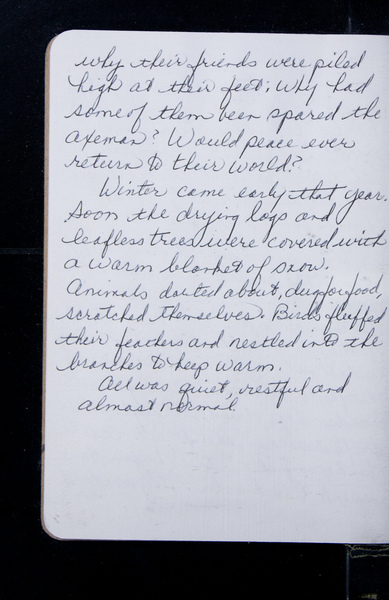 why their friends were piled
high at their feet; Why had
some of them been spared the
axeman? Would peace ever
return to their world?
Winter came early that year.
Soon the drying logs and
leafless trees were covered with
a warm blanket of snow.
Animals darted about, dug for food,
scratched themselves. Birds fluffed
their feathers and nestled into the
branches to keep warm.
All was quiet, restful and
almost normal.